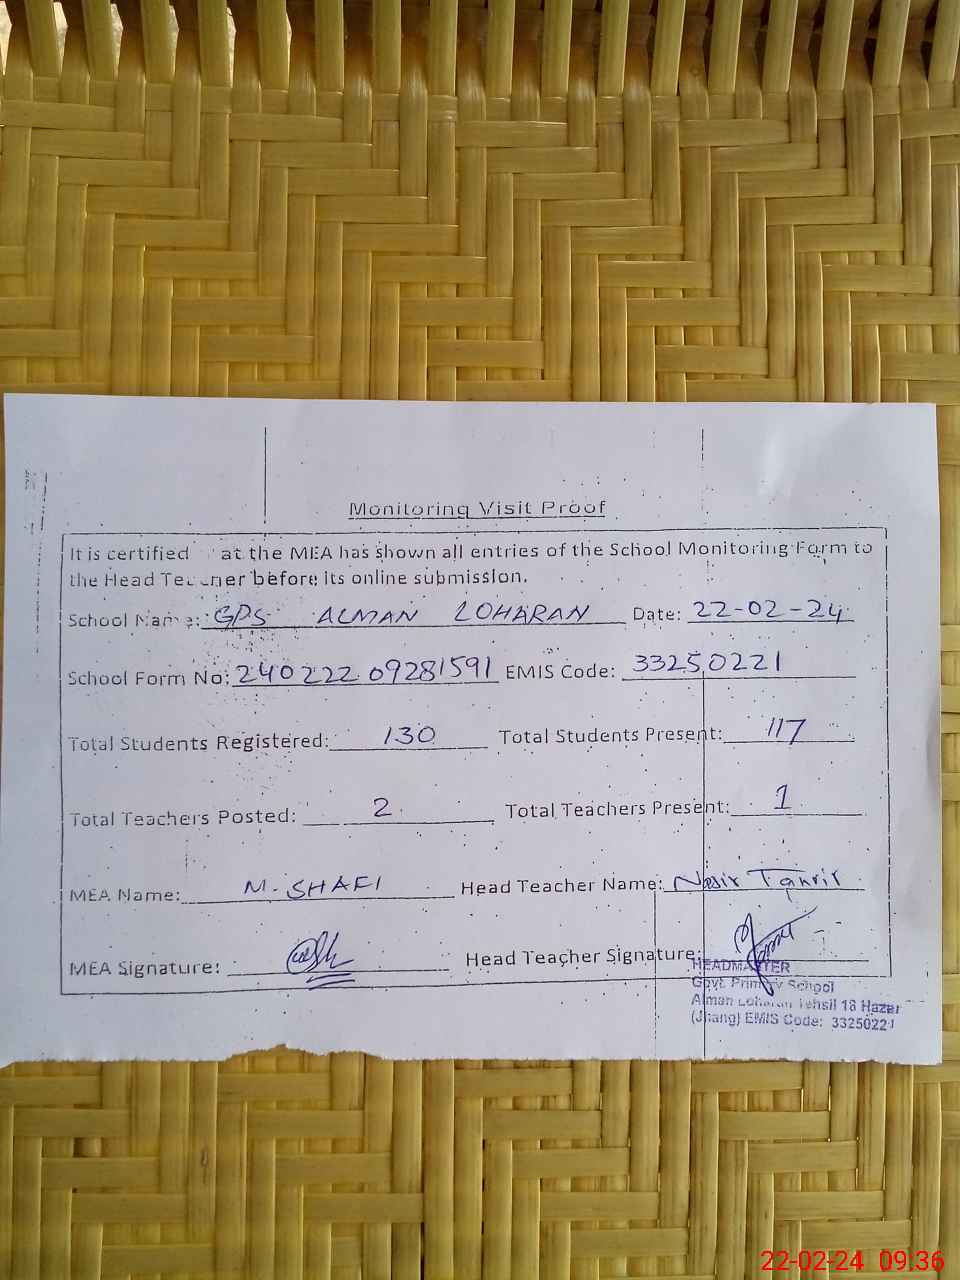 Monitoring Visit Proof
It is certified at the MEA has shown all entries of the School Monitoring Form to
the Head Teacher before its online submission.
School Name: GPS ALMAN LOHARAN Date: 22-02-24
School Form No: 24022209281591 EMIS Code: 33250221
Total Students Registered: 130 Total Students Present: 117
Total Teachers Posted: 2 Total Teachers Present: 1
MEA Name: M. SHAFI Head Teacher Name: Nasir
MEA Signature: Head Teacher Signature:
HEADMASTER
Govt. Primary School
Alman Loharan Tehsil 18 Hazari
(Jhang) EMIS Code: 33250221
22-02-24 09:36